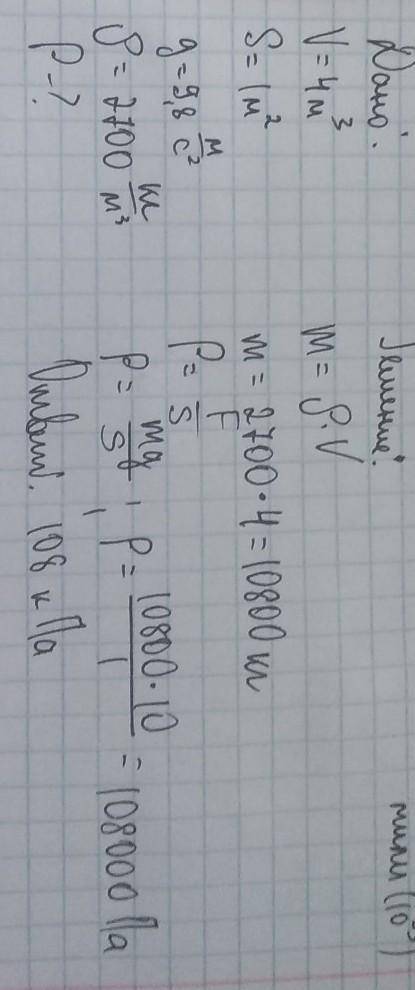 Дано:
V = 4 м³
S = 1 м²
g = 9,8 м/с²
ρ = 2700 кг/м³
P - ?
Решение:
m = ρ · V
m = 2700 · 4 = 10800 кг
P = F/S
P = mg/S, P = 10800 · 10/1 = 108000 Па
Ответ: 108 кПа